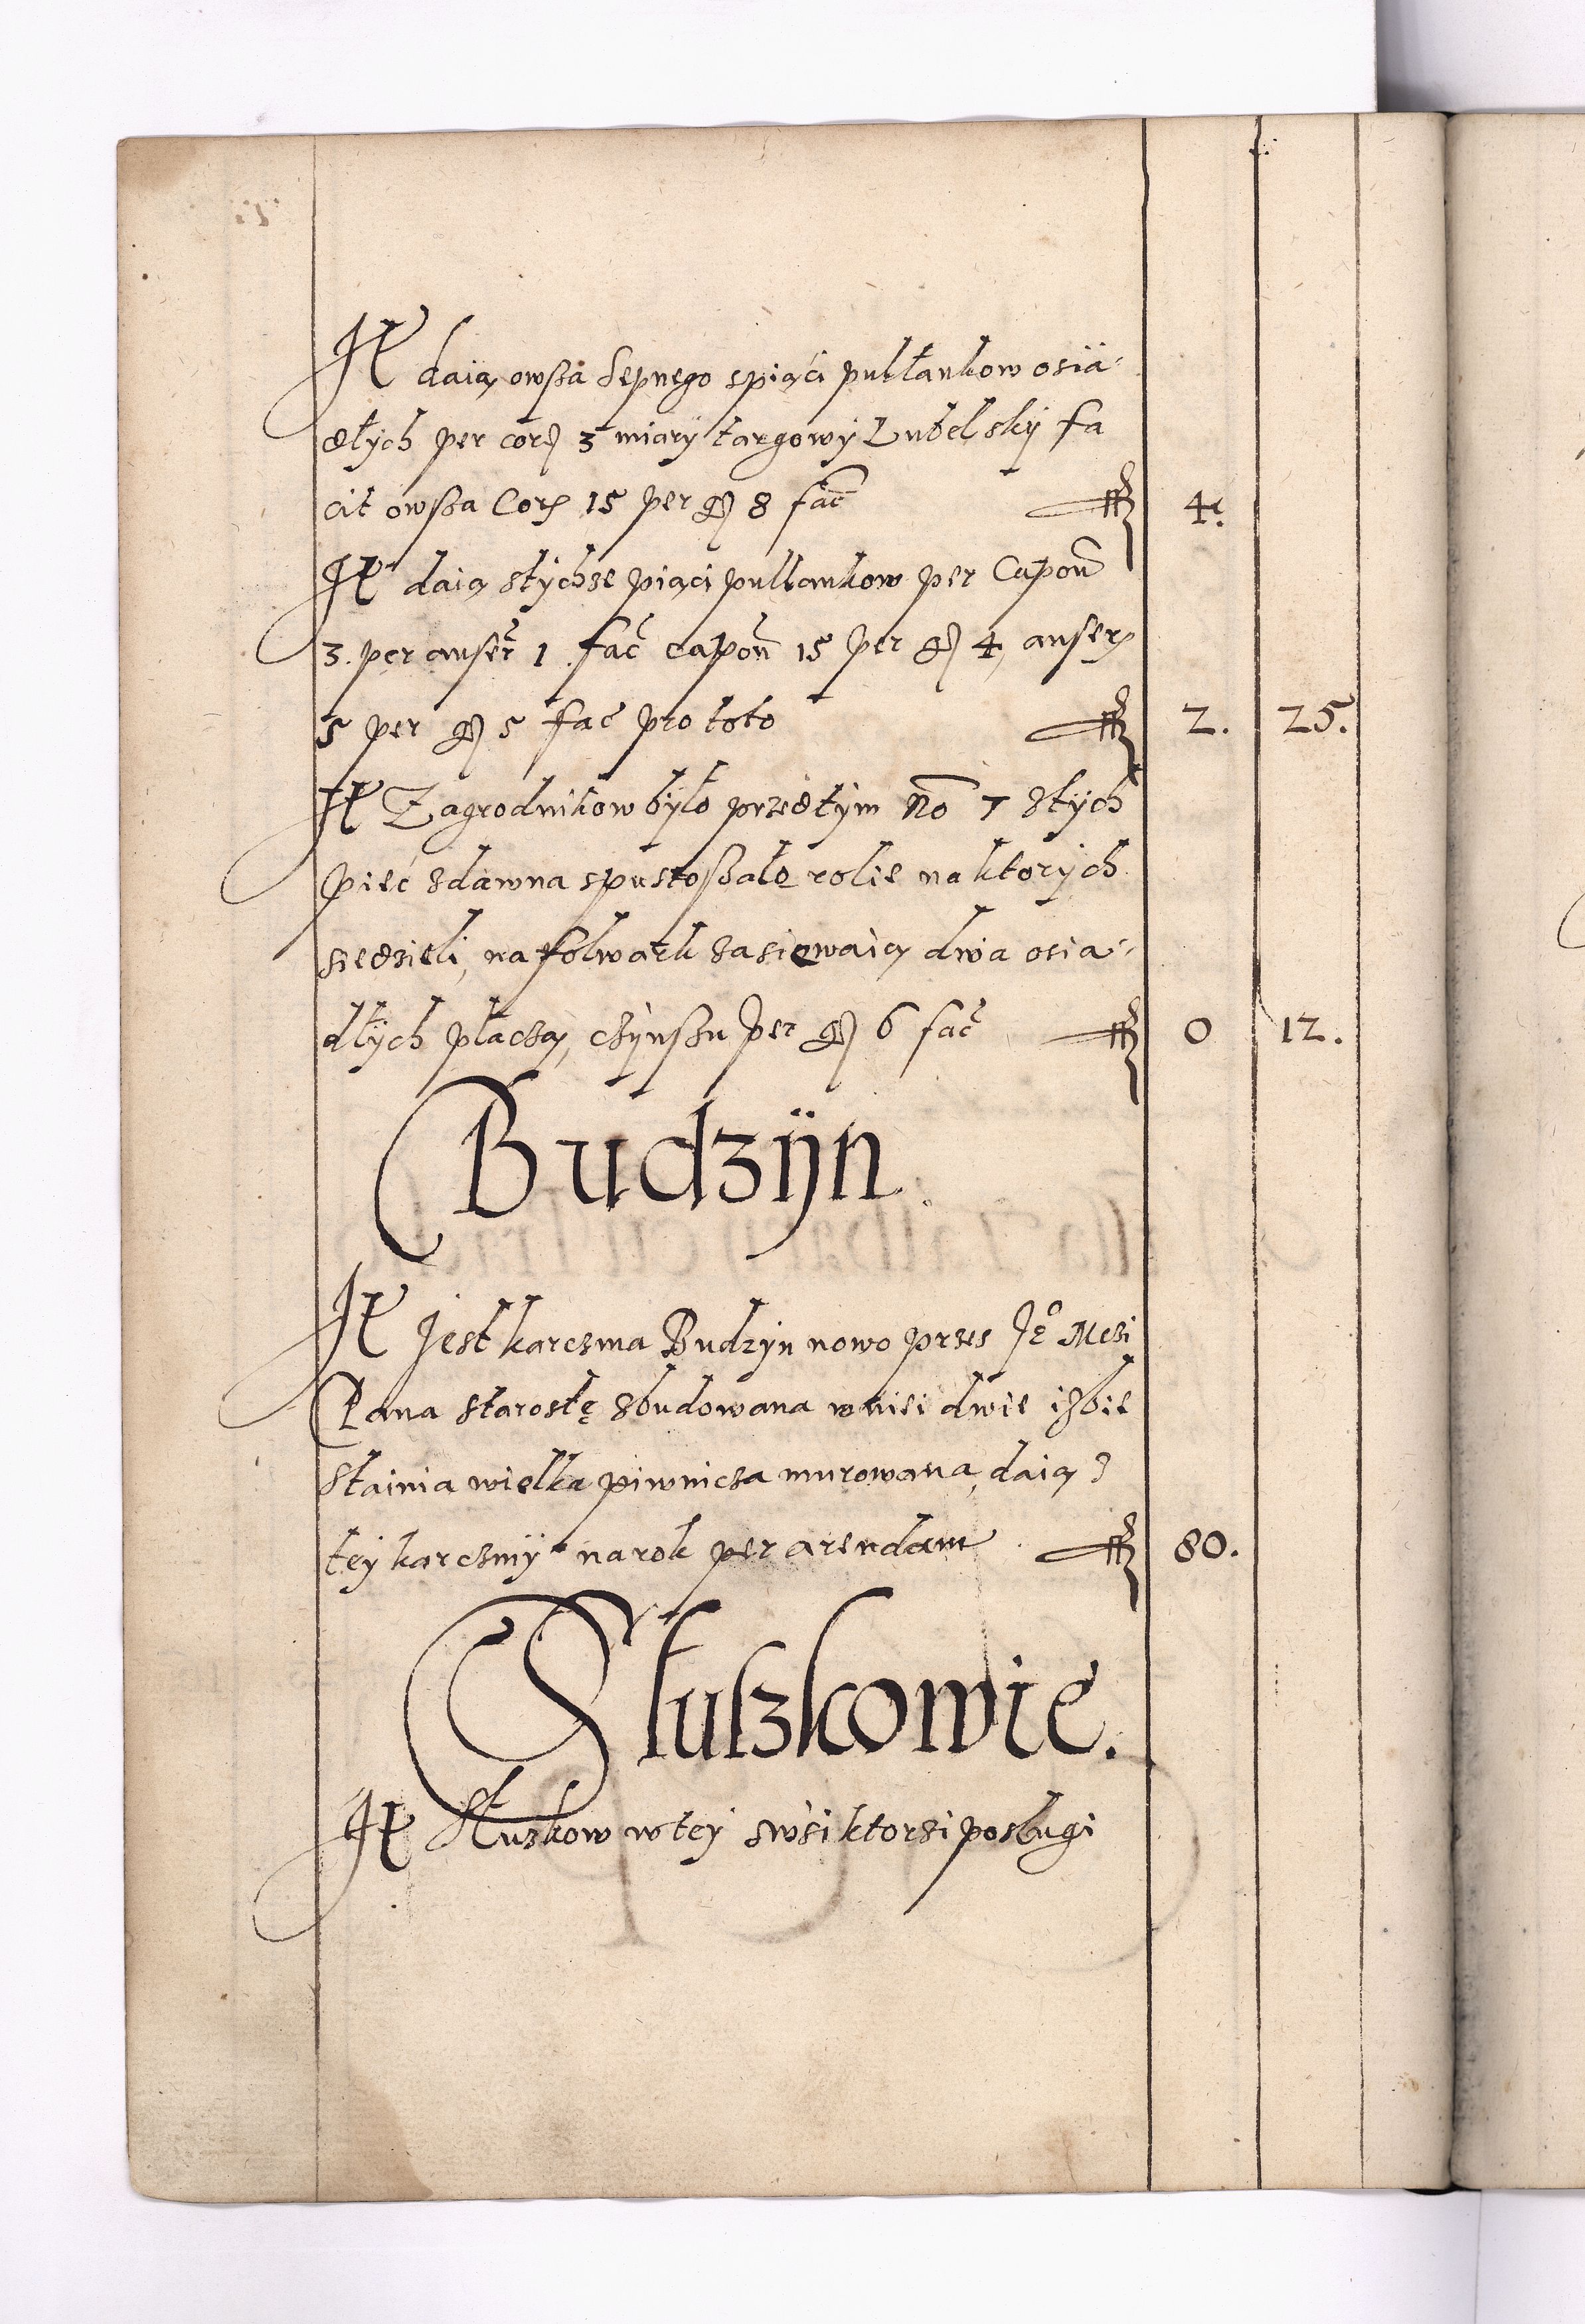 It daią owsza Sepnego spiąci pułłankow osia-
dłÿch per cor 3 miarÿ targowÿ Lubelskÿ fa
cit owsza Cor 15 per gr 8 fac fl 4.
It daią stÿchze piąci pułłankow per Capon
3. per anser 1 fac capon 15 per gr 4, anser
5 per gr 5 fac pro toto fl 2. 25.
It Zagrodnikow bÿło przedtÿm No 7 stÿch
pieć zdawna spustoszałe rolie na ktorÿch
siedzieli, na folwark zasiewaią dwa osia-
dłÿch płaczą, czÿnszu per gr 6 fac fl 0 12.
Budzÿn.
It Jest karczma Budzÿn nowo przes Je° Mczi
Pana starostę zbudowana wniei dwie izbie
stainia wielka piwnicza murowana, daią z
teÿ karczmÿ na rok per arendam fl 80.
Słuszkowie.
It Słuzkow wteÿ wsi ktorzi posługi